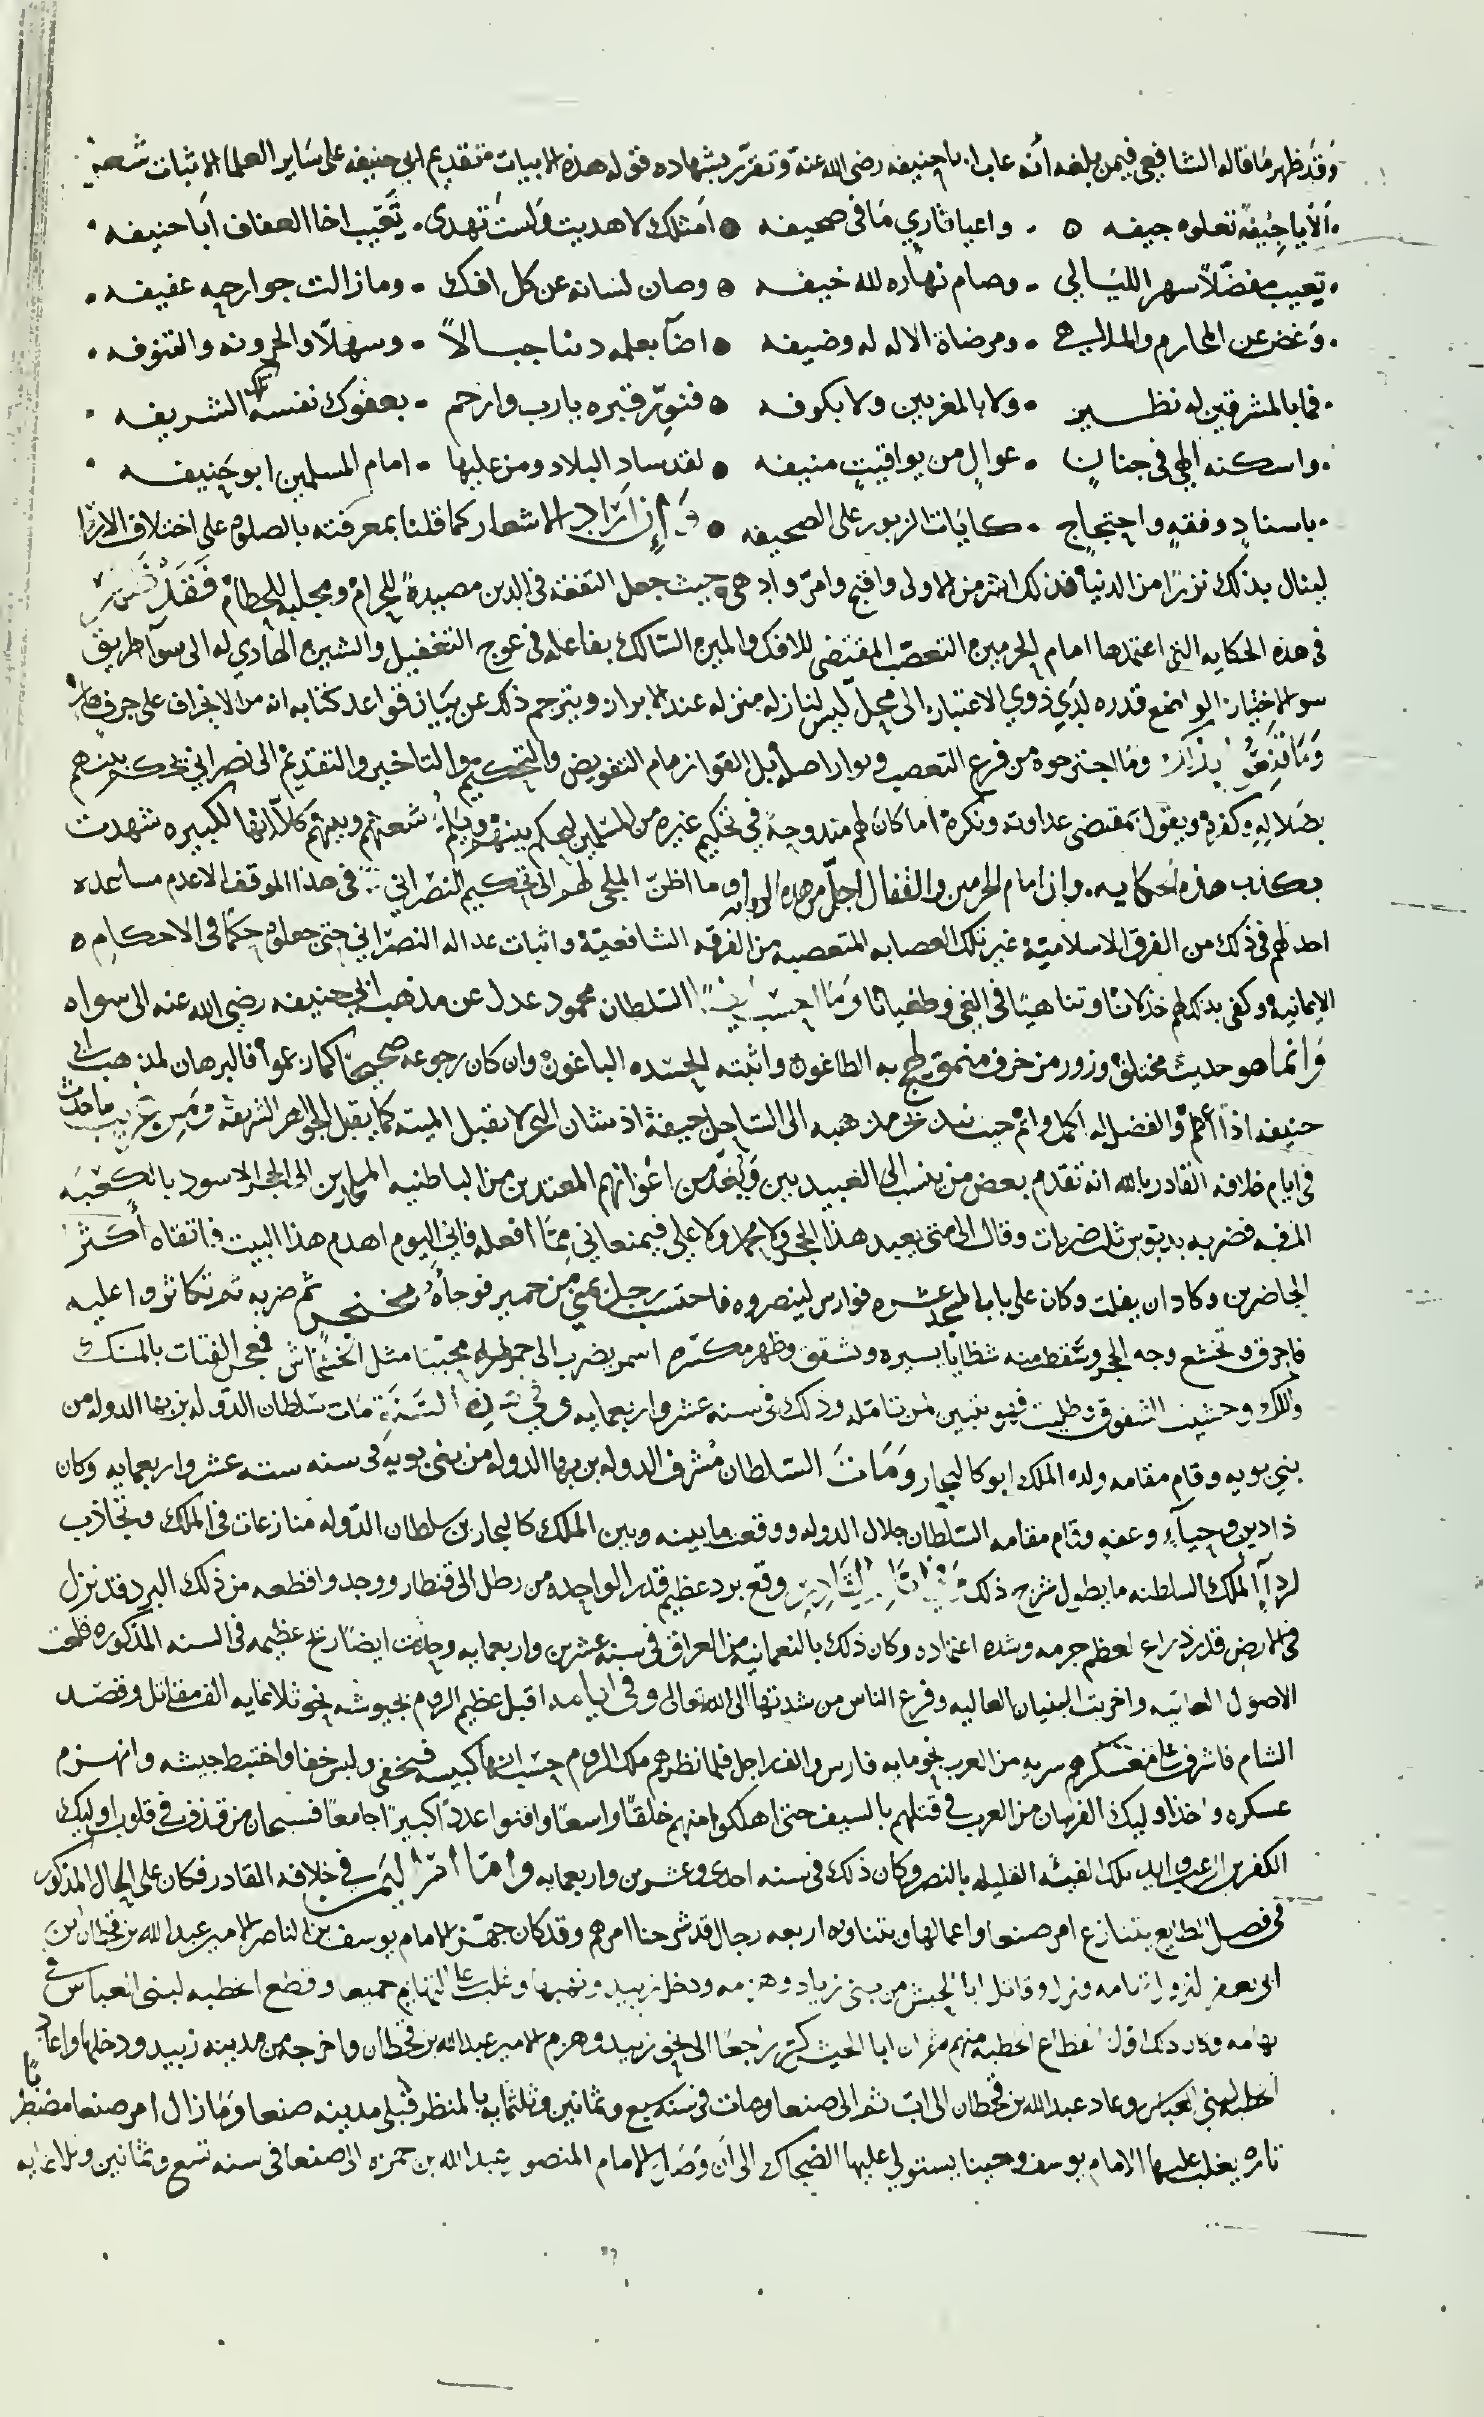 وقد ظهر ما قاله الشافعي فيمن بلغه أنه عاب ابا حنيفه رضي الله عنه وتقرر بشهاده قوله هذه الابيات متقديم ابي حنيفه على ساير العلما الاثبات شعر
ألا يا جيفة تعلوه جيفه • واعيا قاري ما في صحيفه • امثلك لا هديت ولست تهدى • تعيب اخا العفاف ابا حنيفه
تعيب مفضلا سهر الليالي • وصام نهاره لله خيفه • وصان لسانه عن كل افك • وما زالت جوارحه عفيفه
وغض عن المحارم والملاهي • ومرضاة الاله له وضيفه • اضآ بعلمه دنيا جبالا • وسهلا والحزونه والتنوفه
فما بالمشرقين له نظير • ولا بالمغربين ولا بكوفه • فنور قبره يا رب وارحم • بعفوك نفسه تلك الشريفه
واسكنه الهي في جنان • عوال من يواقيت منيفه • لقد ساد البلاد ومن عليها • امام المسلمين ابو حنيفه
باسناد وفقه واحتجاج • كايات الزبور على الصحيفه • وإن اراد الاشعار كما قلنا بمعرفته بالصلوه على اختلاف الارا
لينال بذلك نزرا من الدنيا فذلك اشر من الاولى واقبح وامر وادهى حيث جعل التفقه في الدين مصيدة للحرام ومجلبة للحطام فقد
في هذه الحكايه التي اعتمدها امام الحرمين التعصب المقتضي للافك والمين السالك بفاعله في عوج التغفيل والشين الهادي له الى سوآ طريق
سو الاختيار الواضع قدره لدى ذوي الاعتبار الى محل ليس لنازله منزله عند الابرار ويترجم ذلك عن بيان قواعد كتابه انه من الانحراف على جرف هار
وما قنعوا بذلك وما اجترحوه من فرع التعصب وبوار اصله بل القوا زمام التفويض والتحكيم والتاخير والتقديم الى نصراني يحكم بينهم
بضلاله وكفره ويقول بمقتضى عداوته ونكره اما كان لهم مندوحة في تحكيم غيره من المسلمين ليحكم بينهم ويلم شعثهم وبينهم كلا انها لكبيره شهدت
بكذب هذه الحكايه وان امام الحرمين والقفال اجل من هذه الروايه وما اظن الملجي لهم الى تحكيم النصراني في هذا الموقف الا عدم مساعده
احد لهم في ذلك من الفرق الاسلاميه غير تلك العصابه المتعصبه من الفرقه الشافعية واثبات عداله النصراني حتى جعلوه حكما في الاحكام
الايمانيه وكفى بذلك لهم خذلانا وتناهيا في الغي وطغيانا وما احسب ان السلطان محمود عدل عن مذهب ابي حنيفه رضي الله عنه الى سواه
وانما هو حديث مختلق وزور مزخرف منمق لهج به الطاغون واثبته الحسده الباغون وان كان رجوعه صحيحا كما زعموا فالبرهان لمذهب ابي
حنيفه اذا اكمل والفضل له اكمل واتم حيث نبذ بحر مذهبه الى الساحل جيفة اذ شان البحر لا يقبل الميته كما يقبل الجواهر الشريفه ومن غريب ما حدث
في ايام خلافه القادر بالله انه تقدم بعض من ينتسب الى العبيديين ويعد من اعوانهم المعتدين من الباطنيه الملحدين الى الحجر الاسود بالكعبه
المشرفه فضربه بدبوس ثلث ضربات وقال الى متى يعبد هذا الحجر ولا محمد ولا علي فيمنعاني مما افعله فاني اليوم اهدم هذا البيت فاتقاه اكثر
الحاضرين وكاد ان يفلت وكان على باب المسجد عشره فوارس لينصروه فاحتسب رجل يمني من حمير فوجأه بخنجر ثم ضربه ثم تكاثروا عليه
فاحرق وتخشع وجه الحجر وسقط منه شظايا يسيره وتشقق وظهر مكسره اسمر يضرب الى صفره محببا مثل الخشخاش فعجن الفتات بالمسك
واللك وحشيت الشقوق وطليت فهو يتبين لمن تامله وذلك في سنه عشر واربعمايه وفي هذه السنة مات سلطان الدوله بن بها الدوله من
بني بويه وقام مقامه ولده الملك ابو كاليجار ومات السلطان مشرف الدوله بن بها الدوله من بني بويه في سنه سته عشر واربعمايه وكان
ذا دين وحياء وعفه وقام مقامه السلطان جلال الدوله ووقعت ما بينه وبين الملك كاليجار بن سلطان الدوله منازعات في الملك وتجاذب
لردآ الملك السلطنه ما يطول شرح ذلك وفي ايام القادر وقع برد عظيم قدر الواحده من رطل الى قنطار ووجد واقطعه من ذلك البرد قد نزل
في الارض قدر ذراع لعظم جرمه وشده اعتماده وكان ذلك بالنعمانيه من العراق في سنه عشرين واربعمايه وحدثت ايضا ريح عظيمه في السنه المذكوره قلعت
الاصول العاتيه واخربت البنيان العاليه وفزع الناس من شدتها الى الله تعالى وفي ايامه اقبل عظيم الروم بجيوشه نحو ثلاثمايه الف مقاتل وقصد
الشام فاشرف على معسكرهم سريه من العرب نحو مايه فارس والف راجل فلما نظرهم ملك الروم حسب انها كبيسه فتخفى ولبس خفا واختبط جيشه وانهزم
عسكره واخذ اوليك الفرسان من العرب في قتلهم بالسيف حتى اهلكوا منهم خلقا واسعا وافنوا عددا كبيرا جامعا فسبحان من قذف في قلوب اوليك
الكفرين الرعب وايد تلك الفيئه القليله بالنصر وكان ذلك في سنه احدى وعشرين واربعمايه واما امر اليمن في خلافه القادر فكان على الحال المذكور
في فصل الطايع يتنازع امر صنعا واعمالها ويتناوبه اربعه رجال قد شرحنا امرهم وقد كان جهز الامام يوسف بن الناصر الامير عبد الله بن قحطان ابن
ابي يعفر لغزو اتهامه فغزا وقاتل ابا الجيش من بني زياد وهزمه ودخل زبيد ونهبها وغلب على التهايم جميعا وقطع الخطبه لبني العباس في
تهامه وكان ذلك اول انقطاع الخطبه منهم ثم ان ابا الجيش كر راجعا الى نحو زبيد وهزم الامير عبد الله بن قحطان واخرجه من مدينه زبيد ودخلها واعاد
الخطبه لبني العباس وعاد عبد الله بن قحطان الى اب ثم الى صنعا ومات في سنه سبع وثمانين وثلثمايه بالمنظر قبلي مدينه صنعا وما زال امر صنعا مضطربا
تاره يغلب عليها الامام يوسف وحينا يستولي عليها الضحاك الى ان وصل الامام المنصور عبد الله بن حمزه الى صنعا في سنه تسع وثمانين وثلاثمايه